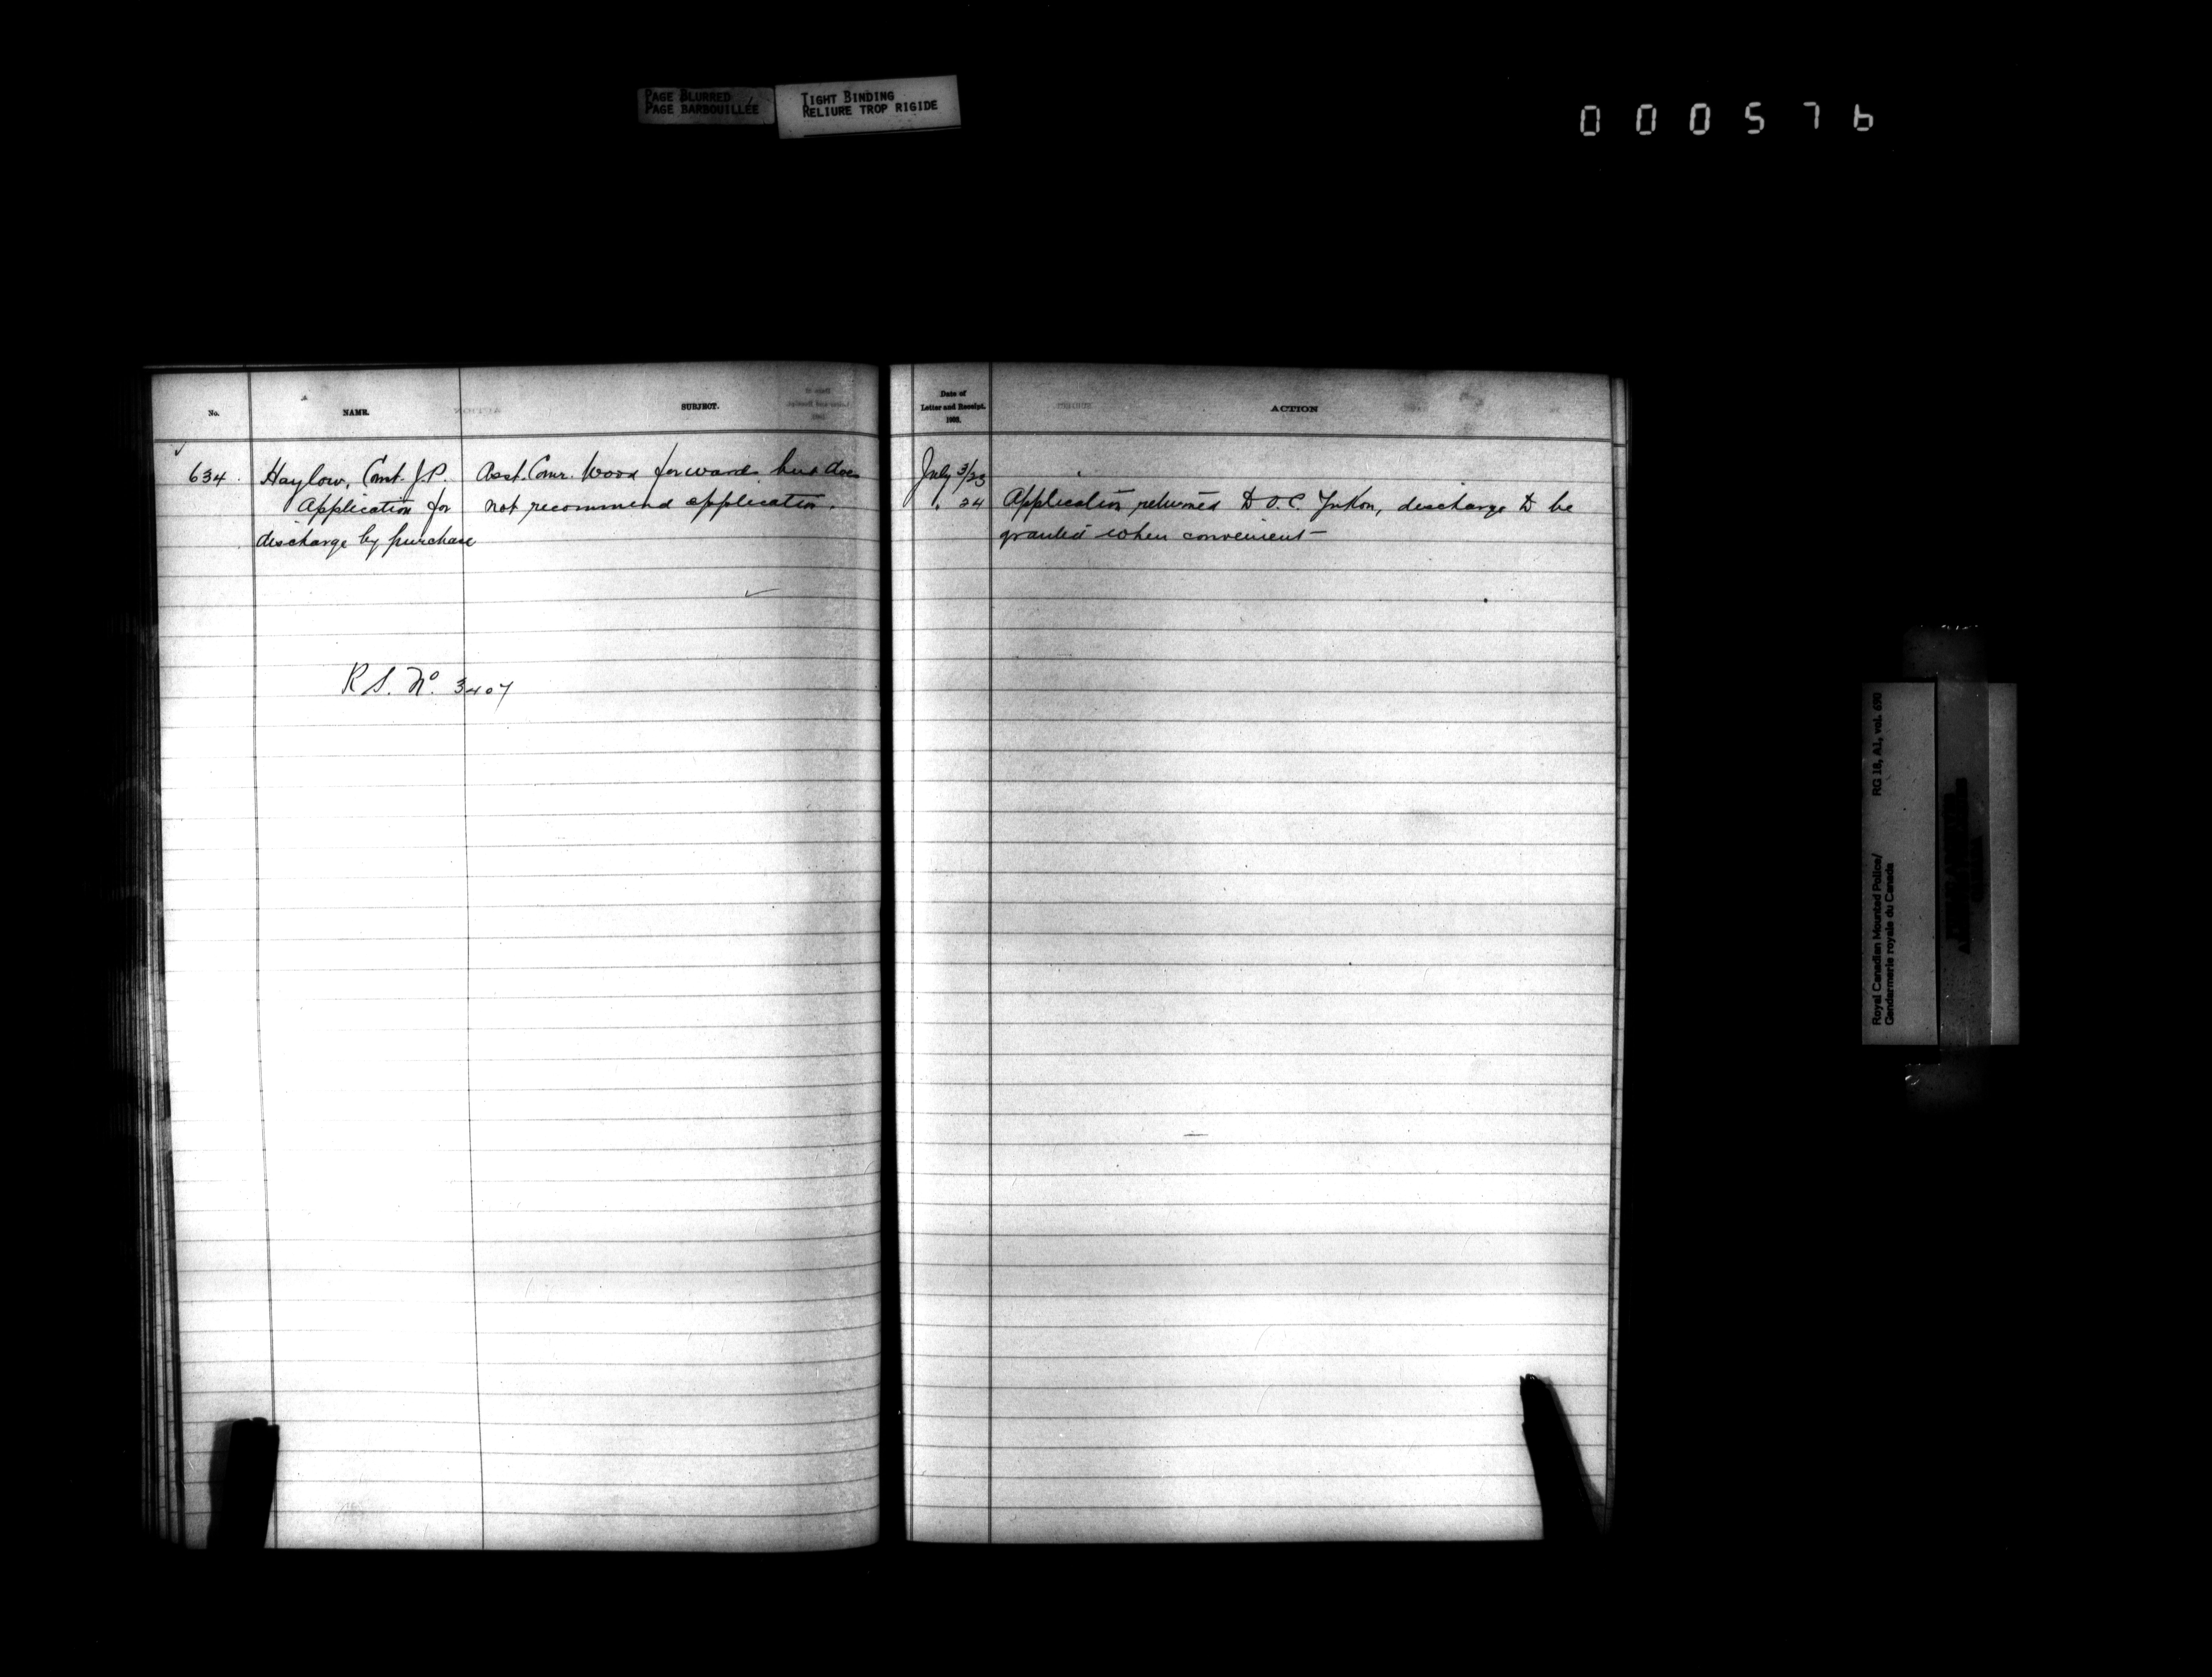 PAGE BLURRED
PAGE BARBOUILLÉE
TIGHT BINDING
RELIURE TROP RIGIDE
000576
No.
NAME.
SUBJECT.
Date of
Letter and Receipt.
1903.
ACTION
634.
Haylow, Const. J.P.
Application for
discharge by purchase
Asst. Comr. Wood forwards but does
not recommend application.
R S. No. 3407
July 3/23
" 24
Application returned to O.C. Yukon, discharge to be
granted when convenient —
Royal Canadian Mounted Police/
Gendarmerie royale du Canada
RG 18, A1, vol. 690